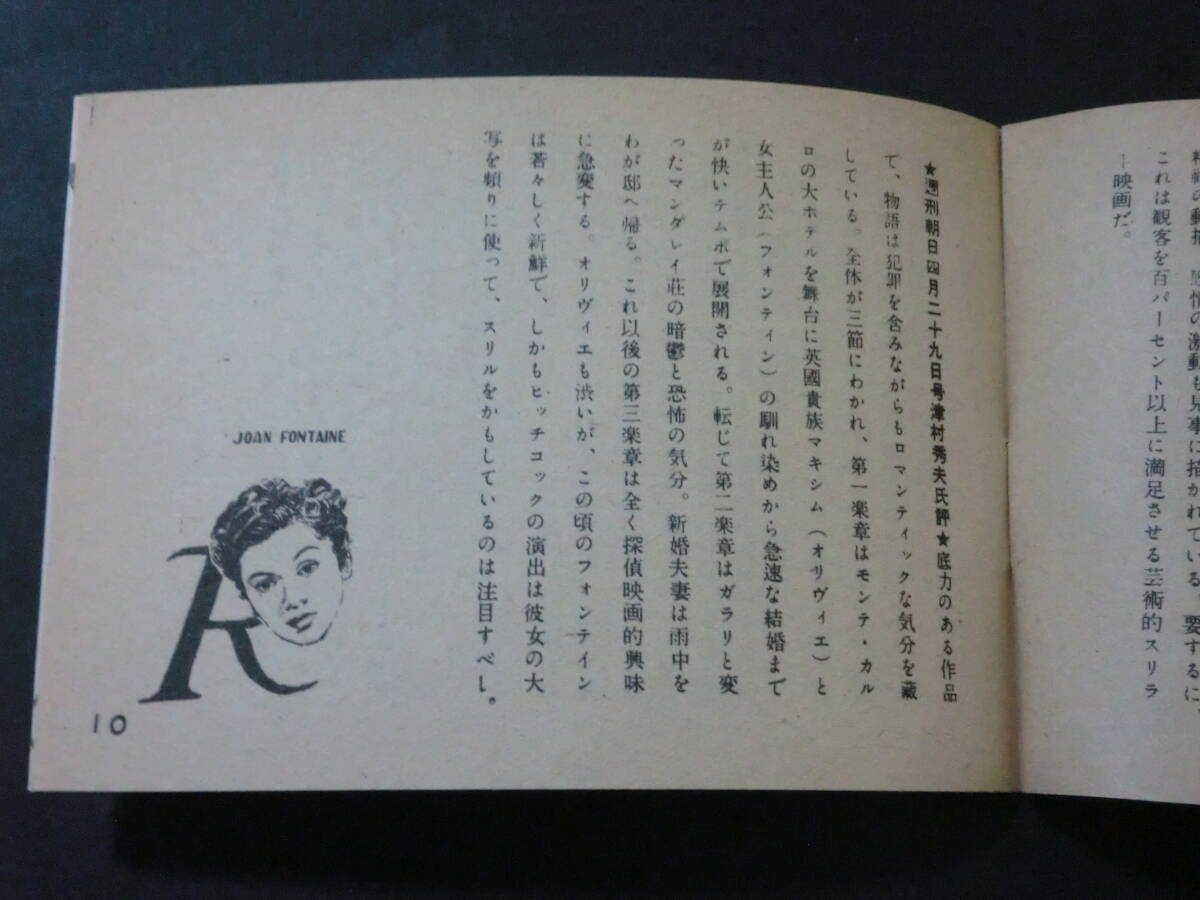 これは観客を百パーセント以上に満足させる芸術的スリラ
ー映画だ。
★週刊朝日四月二十九日号津村秀夫氏評★底力のある作品
て、物語は犯罪を含みながらもロマンティックな気分を藏
している。全体が三節にわかれ、第一楽章はモンテ・カル
ロの大ホテルを舞台に英國貴族マキシム（オリヴィエ）と
女主人公（フォンティン）の馴れ染めから急速な結婚まで
が快いテムポで展開される。転じて第二楽章はガラリと変
ったマンダレイ荘の暗鬱と恐怖の気分。新婚夫妻は雨中を
わが邸へ帰る。これ以後の第三楽章は全く探偵映画的興味
に急変する。オリヴィエも渋いが、この頃のフォンテイン
は若々しく新鮮で、しかもヒッチコックの演出は彼女の大
写を頻りに使って、スリルをかもしているのは注目すべし。
JOAN FONTAINE
R
10